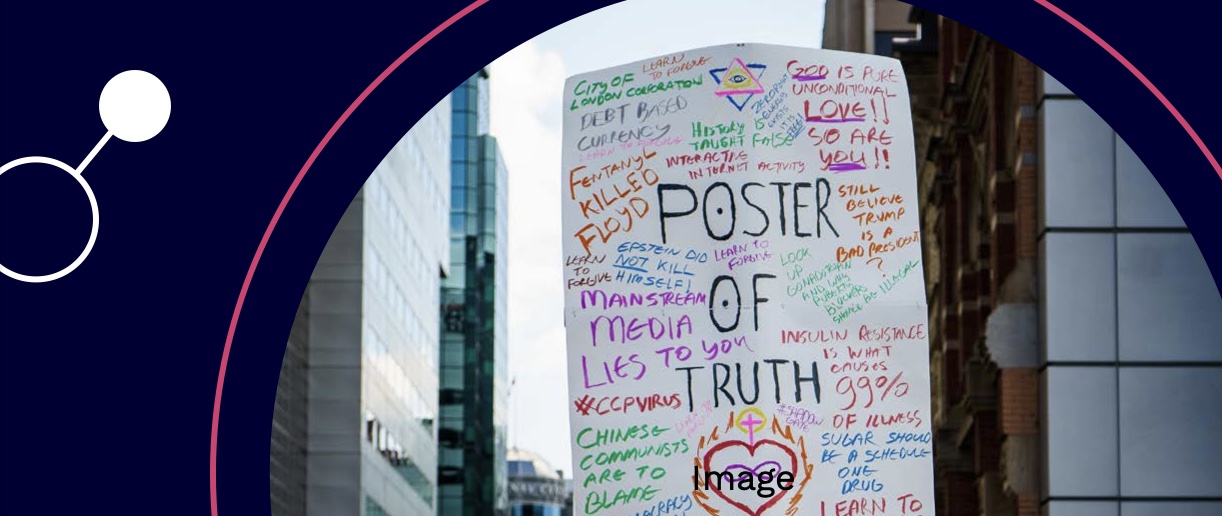 CITY OF
LONDON CORPORATION
LEARN
TO FORGIVE
DEBT BASED
CURRENCY
LEARN TO FORGIVE
HISTORY
IS
TAUGHT FALSE
INTERACTIVE
INTERNET ACTIVITY
GOD IS PURE
UNCONDITIONAL
LOVE!!
SO ARE
YOU!!
FENTANYL
KILLED
FLOYD
POSTER
OF
TRUTH
STILL
BELIEVE
TRUMP
IS A
BAD PRESIDENT
?
LEARN
TO
FORGIVE
EPSTEIN DID
NOT KILL
HIMSELF!
LEARN TO
FORGIVE
LOOK
UP
AND WHY
PUBERTY
BLOCKERS
SHOULD BE ILLEGAL
MAINSTREAM
MEDIA
LIES TO YOU
INSULIN RESISTANCE
IS WHAT
CAUSES
99%
OF ILLNESS
#CCPVIRUS
#SHADOW
GATE
CHINESE
COMMUNISTS
ARE TO
BLAME
SUGAR SHOULD
BE A SCHEDULE
ONE
DRUG
LEARN TO
Image